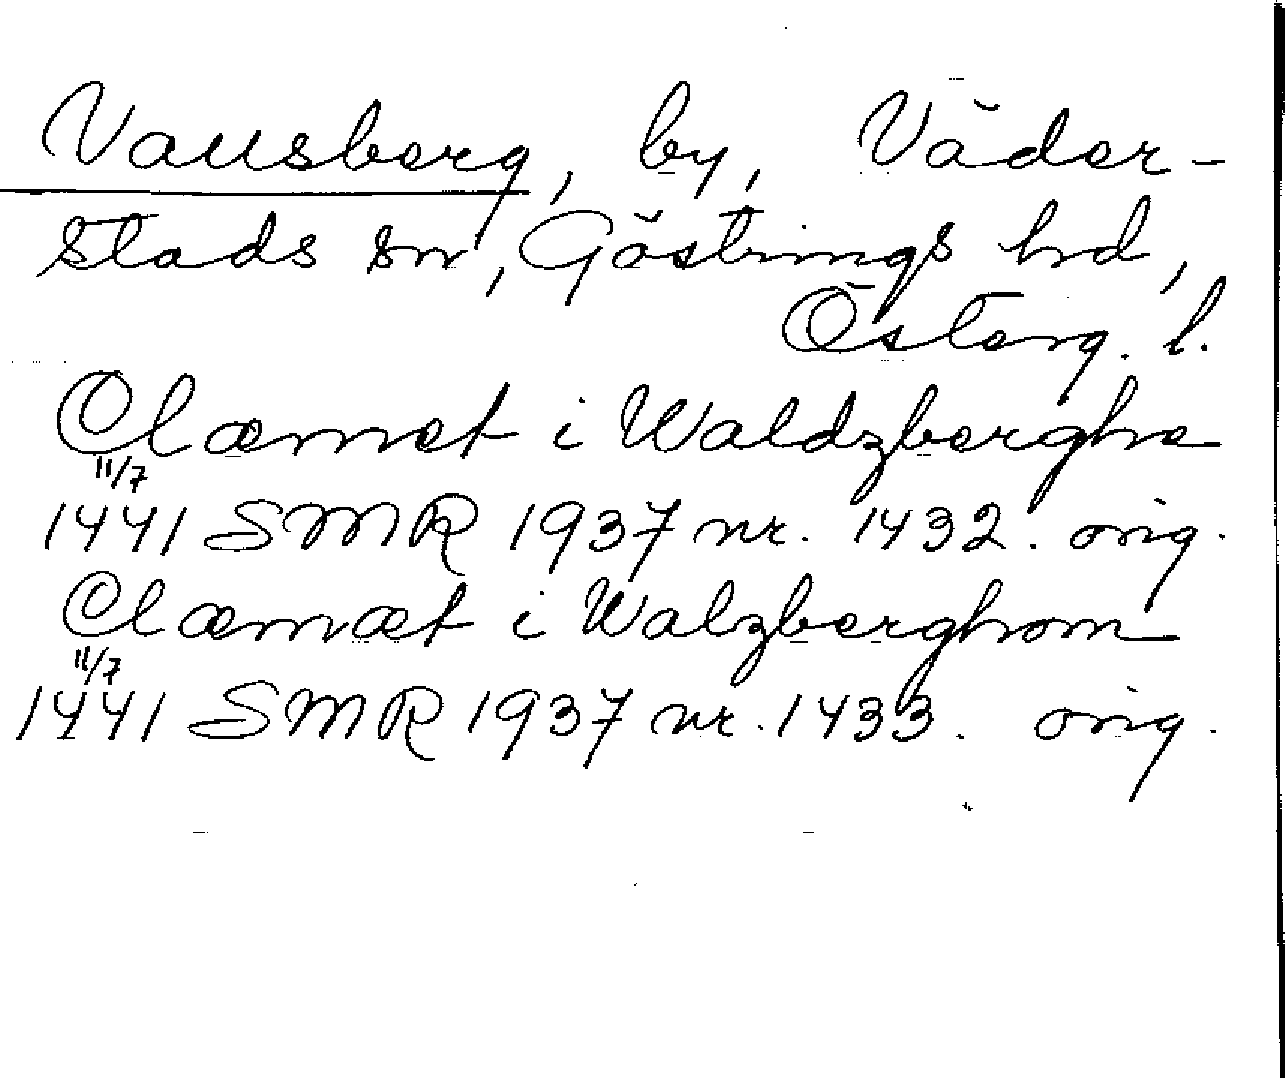 Vallsberg, by, Väder-
stads sn, Göstrings hd,
Österg. l.
Clæmet i Waldzberghe
11/7
1441 SMR 1937 nr. 1432. orig.
Clæmæt i Walzberghom
11/7
1441 SMR 1937 nr. 1433. orig.